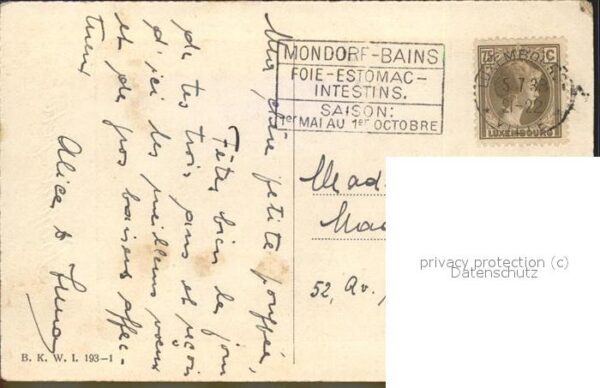 MONDORF-BAINS
FOIE-ESTOMAC-
INTESTINS.
SAISON:
1er MAI AU 1er OCTOBRE
75 C
LUXEMBOURG
LUXEMBOURG
Ma chère petite poupée,
Fêtes bien le jour
de tes trois ans et reçois
d'ici les meilleurs vœux
et de gros baisers affec-
tueux
Alice &
52, Av.
B. K. W. I. 193-1
privacy protection (c)
Datenschutz